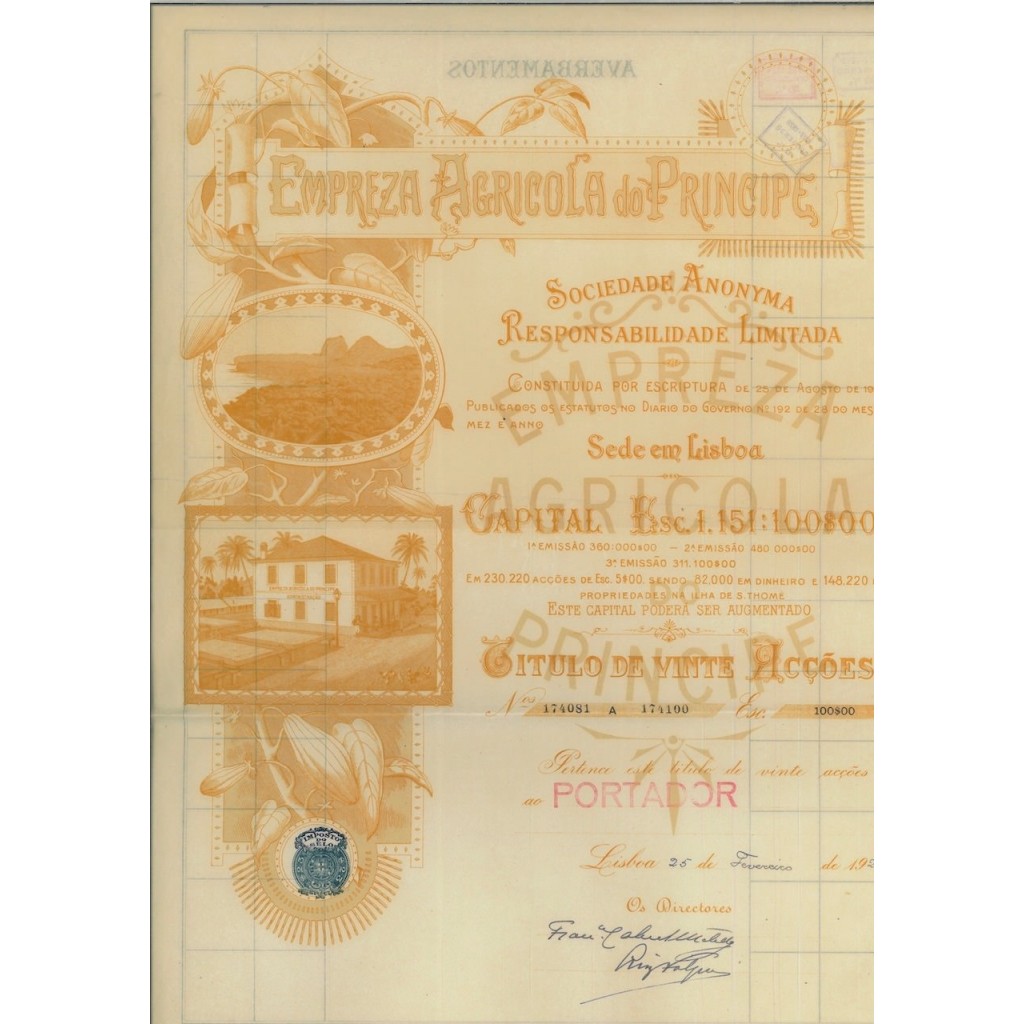 AVERBAMENTOS
EMPREZA AGRICOLA do PRINCIPE
SOCIEDADE ANONYMA
RESPONSABILIDADE LIMITADA
CONSTITUIDA POR ESCRIPTURA DE 25 DE AGOSTO DE 19
PUBLICADOS OS ESTATUTOS NO DIARIO DO GOVERNO Nº 192 DE 28 DO MES
MEZ E ANNO
Sede em Lisboa
CAPITAL Esc. 1.151:100$00
1ª EMISSÃO 360:000$00 — 2ª EMISSÃO 480 000$00
3ª EMISSÃO 311.100$00
EM 230.220 ACÇÕES DE ESC. 5$00, SENDO 82.000 EM DINHEIRO E 148.220
PROPRIEDADES NA ILHA DE S. THOME
ESTE CAPITAL PODERÁ SER AUGMENTADO
TITULO DE VINTE ACÇÕES
Nos 174081 A 174100 Esc. 100$00
Pertence este titulo de vinte acções
ao PORTADOR
Lisboa 25 de Fevereiro de 192
Os Directores
EMPREZA AGRICOLA DO PRINCIPE
IMPOSTO
DO
SELO
EMPREZA
AGRICOLA
DO
PRINCIPE